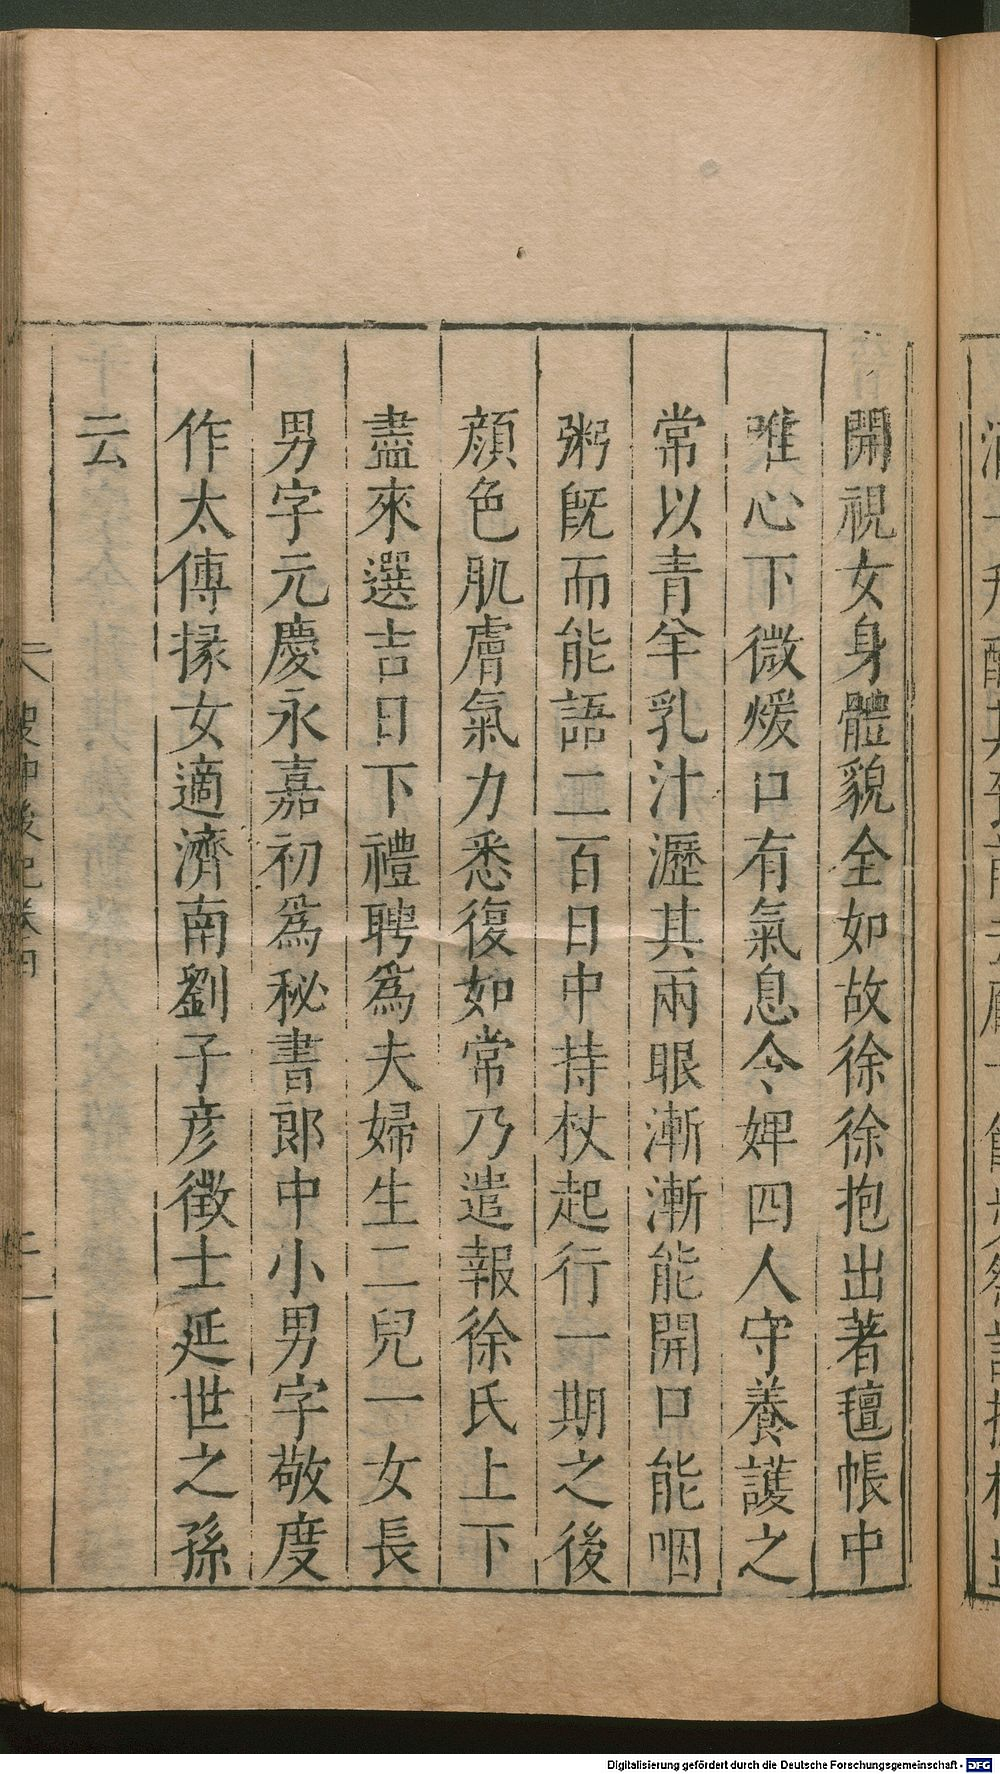 開視女身體貌全如故徐徐抱出著氊帳中
唯心下微煖口有氣息令婢四人守養護之
常以青羊乳汁瀝其兩眼漸漸能開口能咽
粥旣而能語二百日中持杖起行一期之後
顏色肌膚氣力悉復如常乃遣報徐氏上下
盡來選吉日下禮聘爲夫婦生二兒一女長
男字元慶永嘉初爲秘書郎中小男字敬度
作太傅掾女適濟南劉子彥徵士延世之孫
云
搜神後記卷四
Digitalisierung gefördert durch die Deutsche Forschungsgemeinschaft - DFG